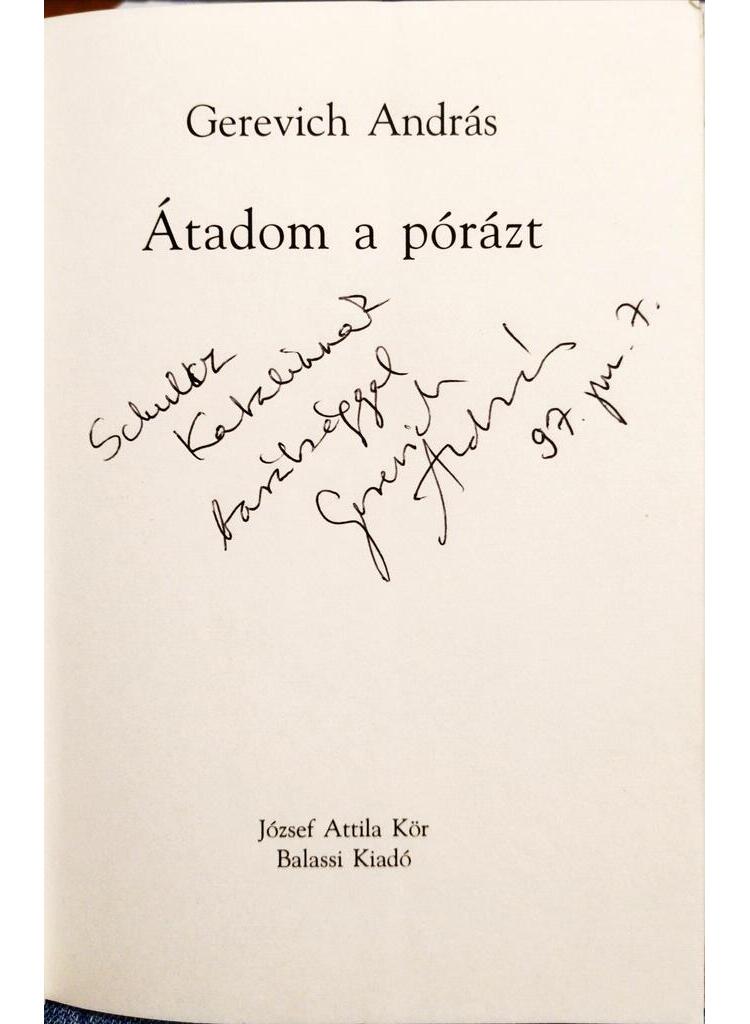 Gerevich András
Átadom a pórázt
Schultz
Katalinnak
barátsággal
Gerevich
András
97. jun. 7.
József Attila Kör
Balassi Kiadó